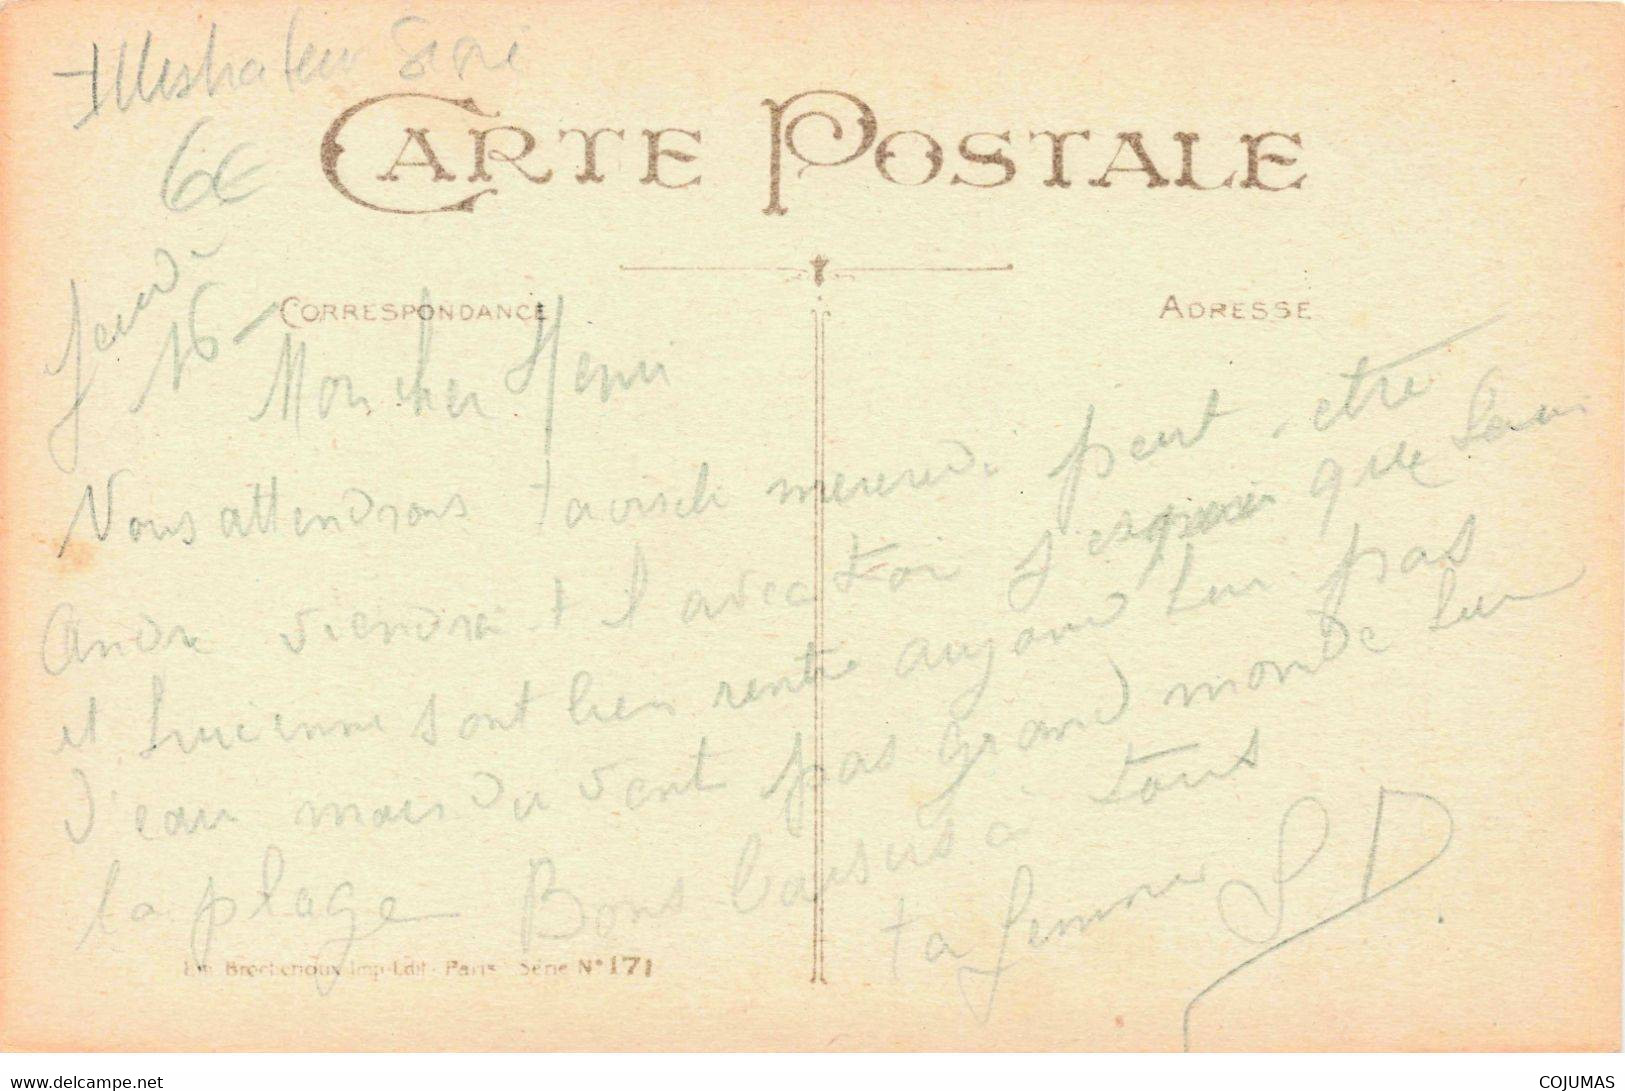 Illustrateur
6€
CARTE POSTALE
Jeudi
16 -
CORRESPONDANCE
ADRESSE
Mon cher Henri
Vous attendrons mercredi peut-etre
Andre viendra-t-il avec toi J'espère que
et Lucienne sont bien rentré aujourd'hui pas
d'eau mais du vent pas grand monde sur
la plage Bons baisers à tous
ta femme SD
Em. Brocherioux Imp-Edit - Paris Série N° 171
www.delcampe.net
COJUMAS